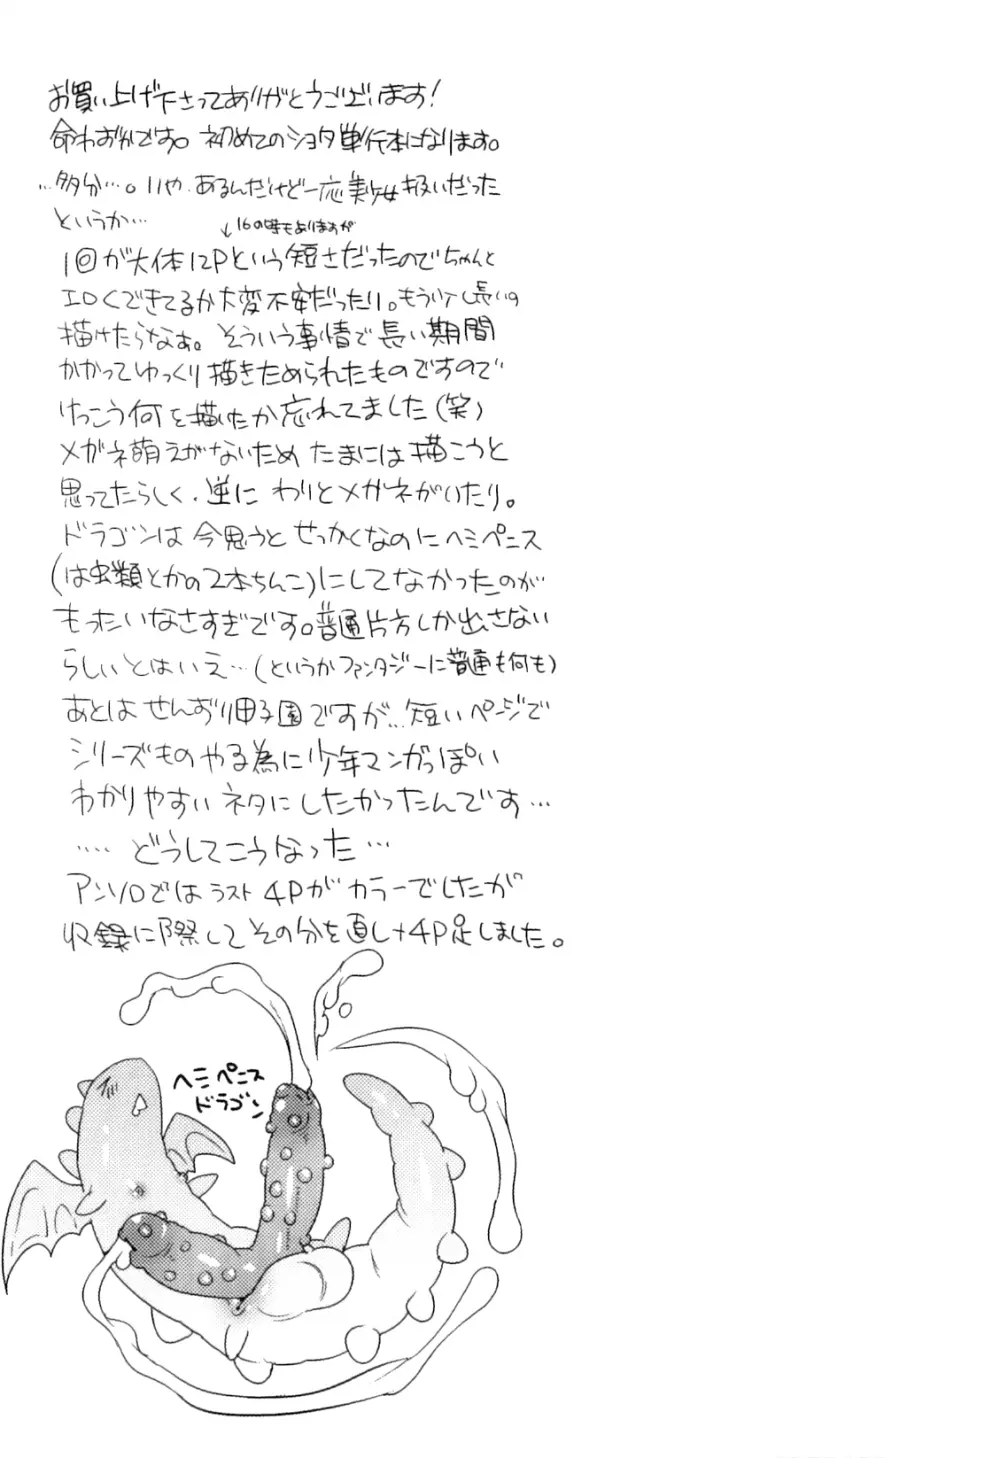 お買い上げ下さってありがとうございます!
命わずかです。初めてのショタ単行本になります。
…多分…。いや、あるんだけど一応美少女扱いだった
というか…
↓16の時もありますが
1回が大体12Pという短さだったのでちゃんと
エロくできてるか大変不安だったり。もう少し長いの
描けたらなぁ。そういう事情で長い期間
かかってゆっくり描きためられたものですので
けっこう何を描いたか忘れてました(笑)
メガネ萌えがないため たまには描こうと
思ってたらしく、逆に わりとメガネがいたり。
ドラゴンは今思うと せっかくなのにヘミペニス
(は虫類とかの2本ちんこ)にしてなかったのが
もったいなさすぎです。普通片方しか出さない
らしいとはいえ…(というかファンタジーに普通も何も)
あとは せんずり甲子園ですが… 短いページで
シリーズものやる為に少年マンガっぽい
わかりやすい ネタにしたかったんです…
…… どうしてこうなった…
アンソロではラスト4Pがカラーでしたが
収録に際して その分を直し+4P足しました。
ヘミペニス
ドラゴン